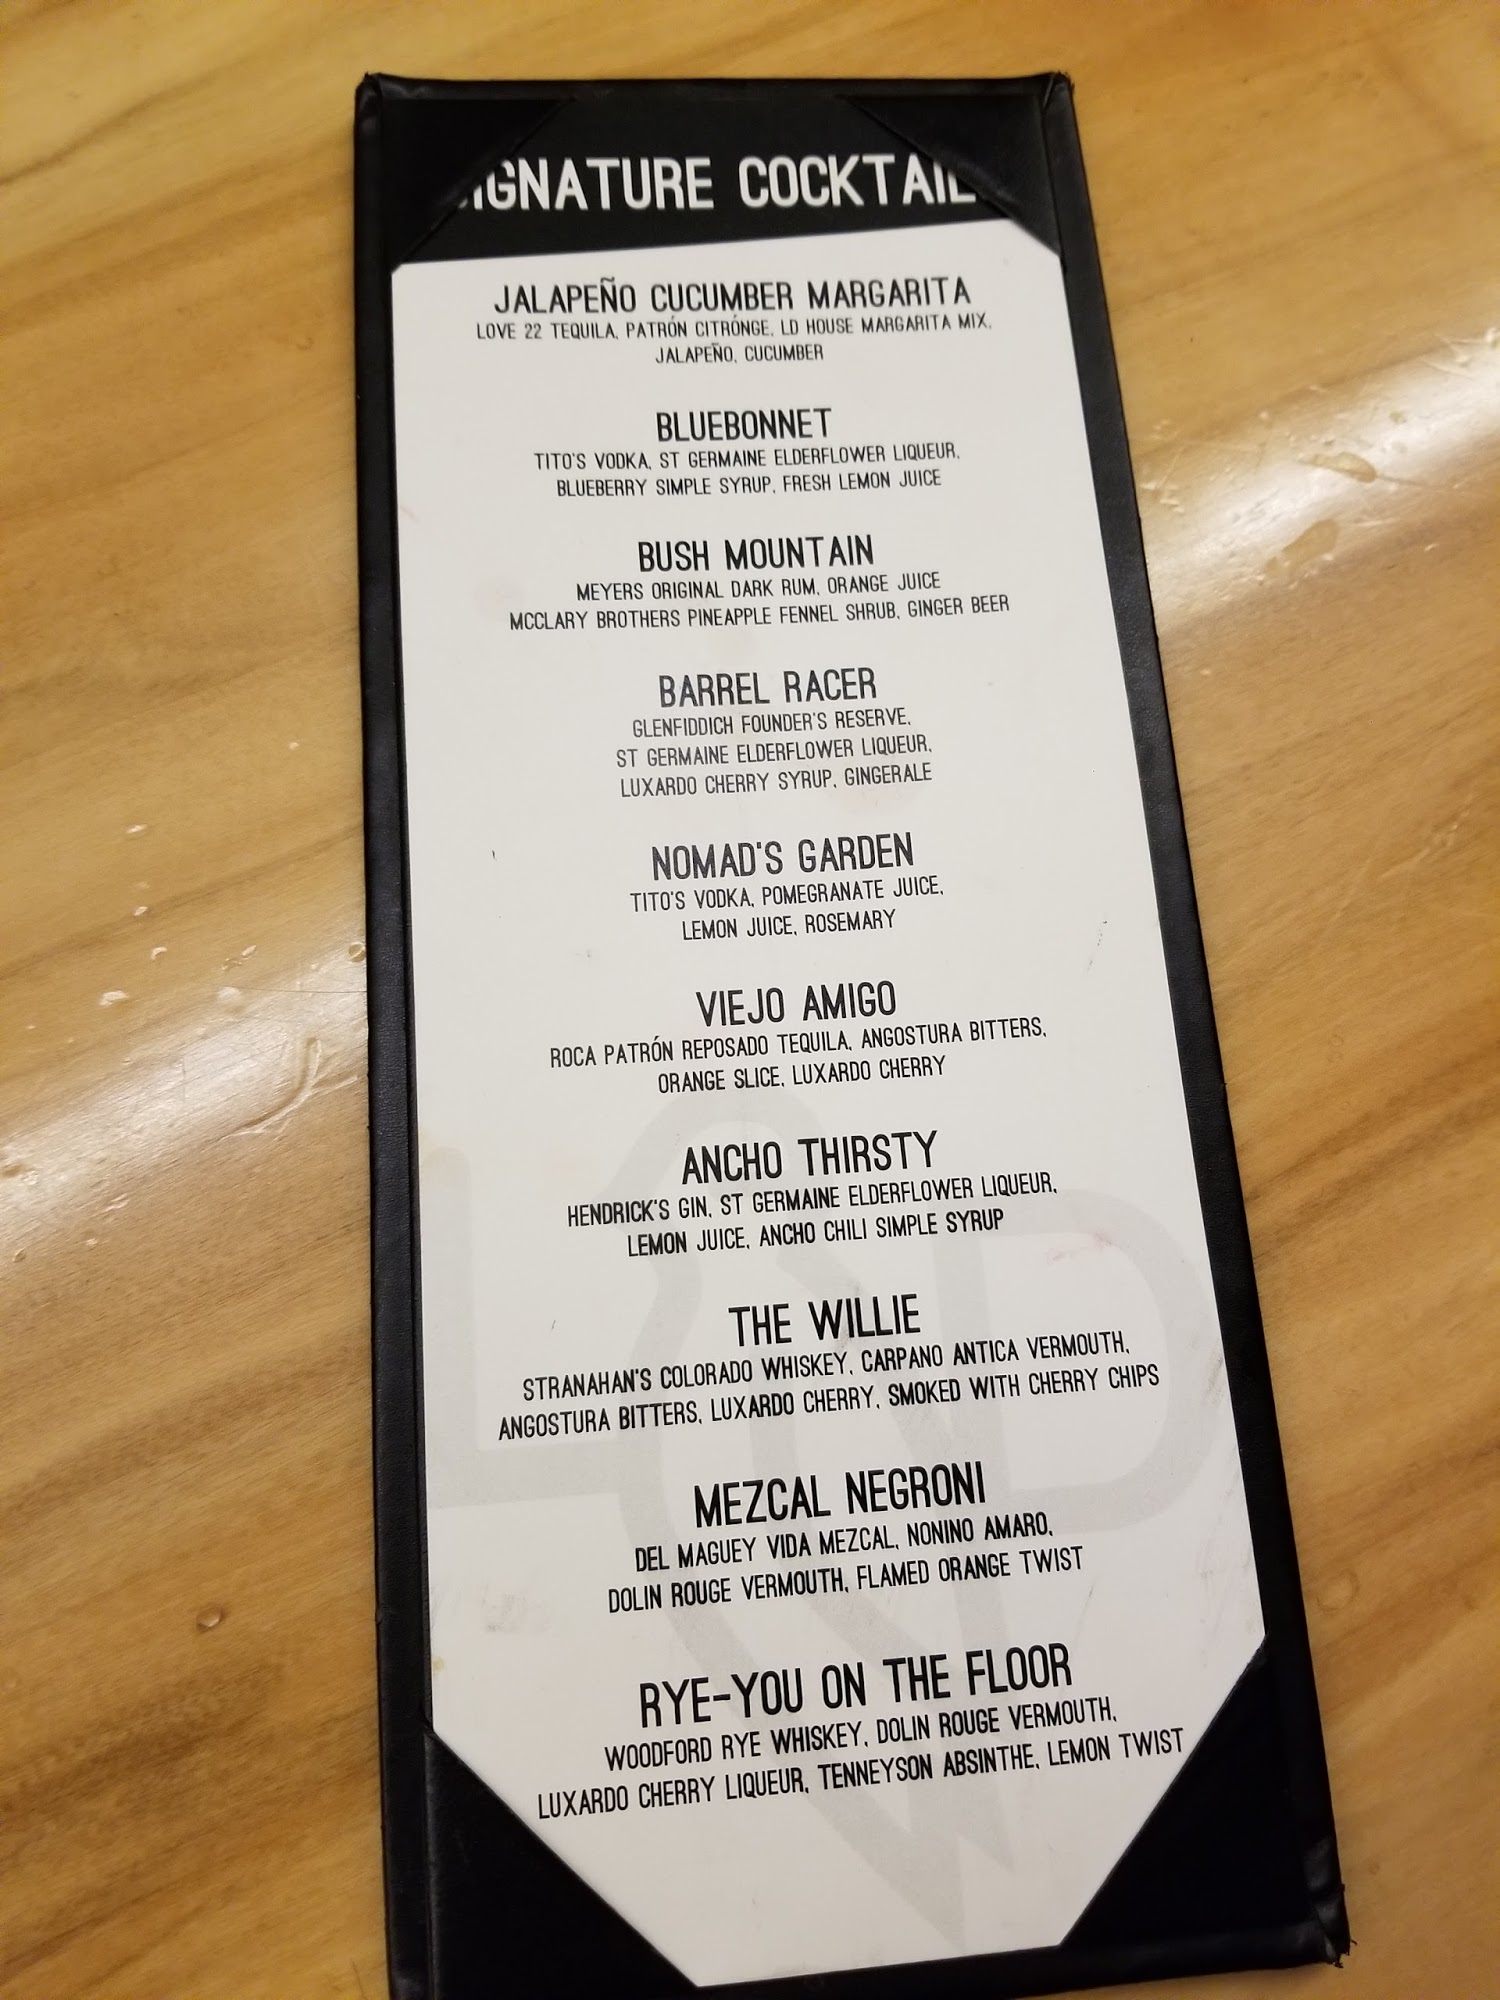 SIGNATURE COCKTAIL
JALAPEÑO CUCUMBER MARGARITA
LOVE 22 TEQUILA, PATRÓN CITRÓNGE, LD HOUSE MARGARITA MIX,
JALAPEÑO, CUCUMBER
BLUEBONNET
TITO'S VODKA, ST GERMAINE ELDERFLOWER LIQUEUR,
BLUEBERRY SIMPLE SYRUP, FRESH LEMON JUICE
BUSH MOUNTAIN
MEYERS ORIGINAL DARK RUM, ORANGE JUICE
MCCLARY BROTHERS PINEAPPLE FENNEL SHRUB, GINGER BEER
BARREL RACER
GLENFIDDICH FOUNDER'S RESERVE,
ST GERMAINE ELDERFLOWER LIQUEUR,
LUXARDO CHERRY SYRUP, GINGERALE
NOMAD'S GARDEN
TITO'S VODKA, POMEGRANATE JUICE,
LEMON JUICE, ROSEMARY
VIEJO AMIGO
ROCA PATRÓN REPOSADO TEQUILA, ANGOSTURA BITTERS,
ORANGE SLICE, LUXARDO CHERRY
ANCHO THIRSTY
HENDRICK'S GIN, ST GERMAINE ELDERFLOWER LIQUEUR,
LEMON JUICE, ANCHO CHILI SIMPLE SYRUP
THE WILLIE
STRANAHAN'S COLORADO WHISKEY, CARPANO ANTICA VERMOUTH,
ANGOSTURA BITTERS, LUXARDO CHERRY, SMOKED WITH CHERRY CHIPS
MEZCAL NEGRONI
DEL MAGUEY VIDA MEZCAL, NONINO AMARO,
DOLIN ROUGE VERMOUTH, FLAMED ORANGE TWIST
RYE-YOU ON THE FLOOR
WOODFORD RYE WHISKEY, DOLIN ROUGE VERMOUTH,
LUXARDO CHERRY LIQUEUR, TENNEYSON ABSINTHE, LEMON TWIST